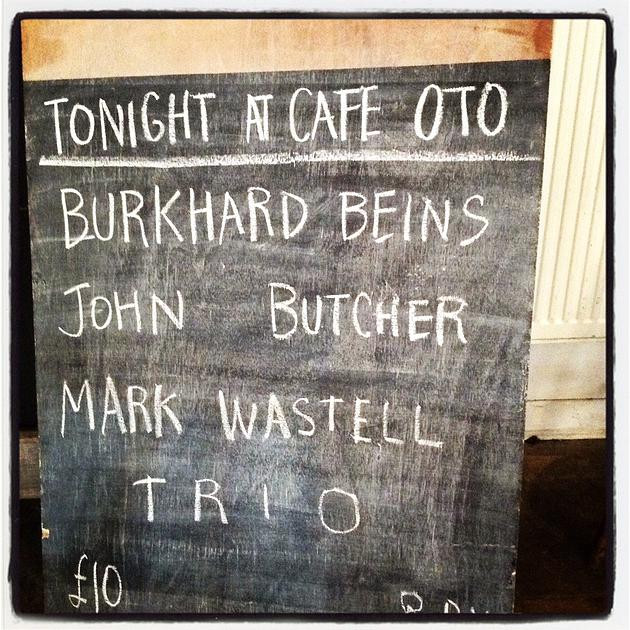 TONIGHT AT CAFE OTO
BURKHARD BEINS
JOHN BUTCHER
MARK WASTELL
TRIO
£10